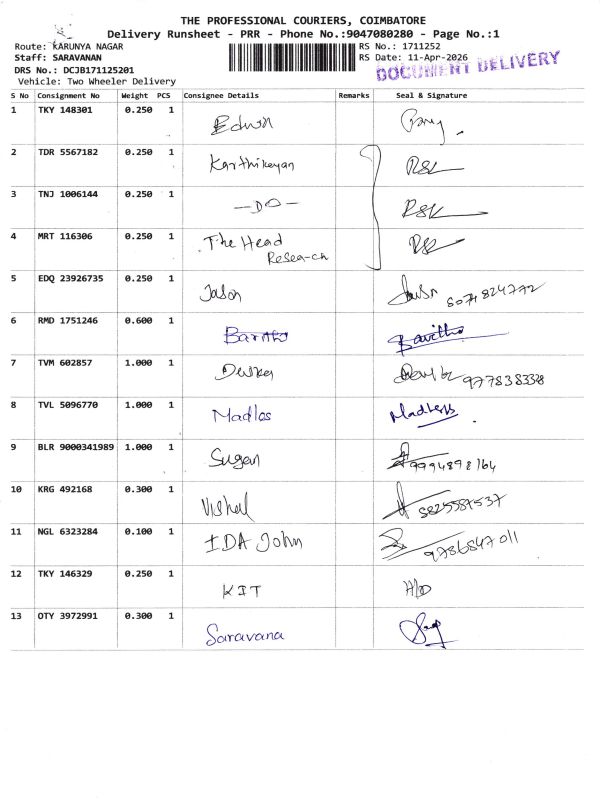 THE PROFESSIONAL COURIERS, COIMBATORE
Delivery Runsheet - PRR - Phone No.:9047080280 - Page No.:1
Route: KARUNYA NAGAR RS No.: 1711252
Staff: SARAVANAN RS Date: 11-Apr-2026
DOCUMENT DELIVERY
DRS No.: DCJB171125201
Vehicle: Two Wheeler Delivery
S No Consignment No Weight PCS Consignee Details Remarks Seal & Signature
1 TKY 148301 0.250 1 Edwin
2 TDR 5567182 0.250 1 Karthikeyan RSK
3 TNJ 1006144 0.250 1 —DO— RSK
4 MRT 116306 0.250 1 The Head RSK
Research
5 EDQ 23926735 0.250 1 Jason 8074824772
6 RMD 1751246 0.600 1
7 TVM 602857 1.000 1 977838338
8 TVL 5096770 1.000 1 Madlas
9 BLR 9000341989 1.000 1 Sugan 9994898164
10 KRG 492168 0.300 1 Vishal 8825587537
11 NGL 6323284 0.100 1 IDA John 9786847011
12 TKY 146329 0.250 1 KIT
13 OTY 3972991 0.300 1 Saravana